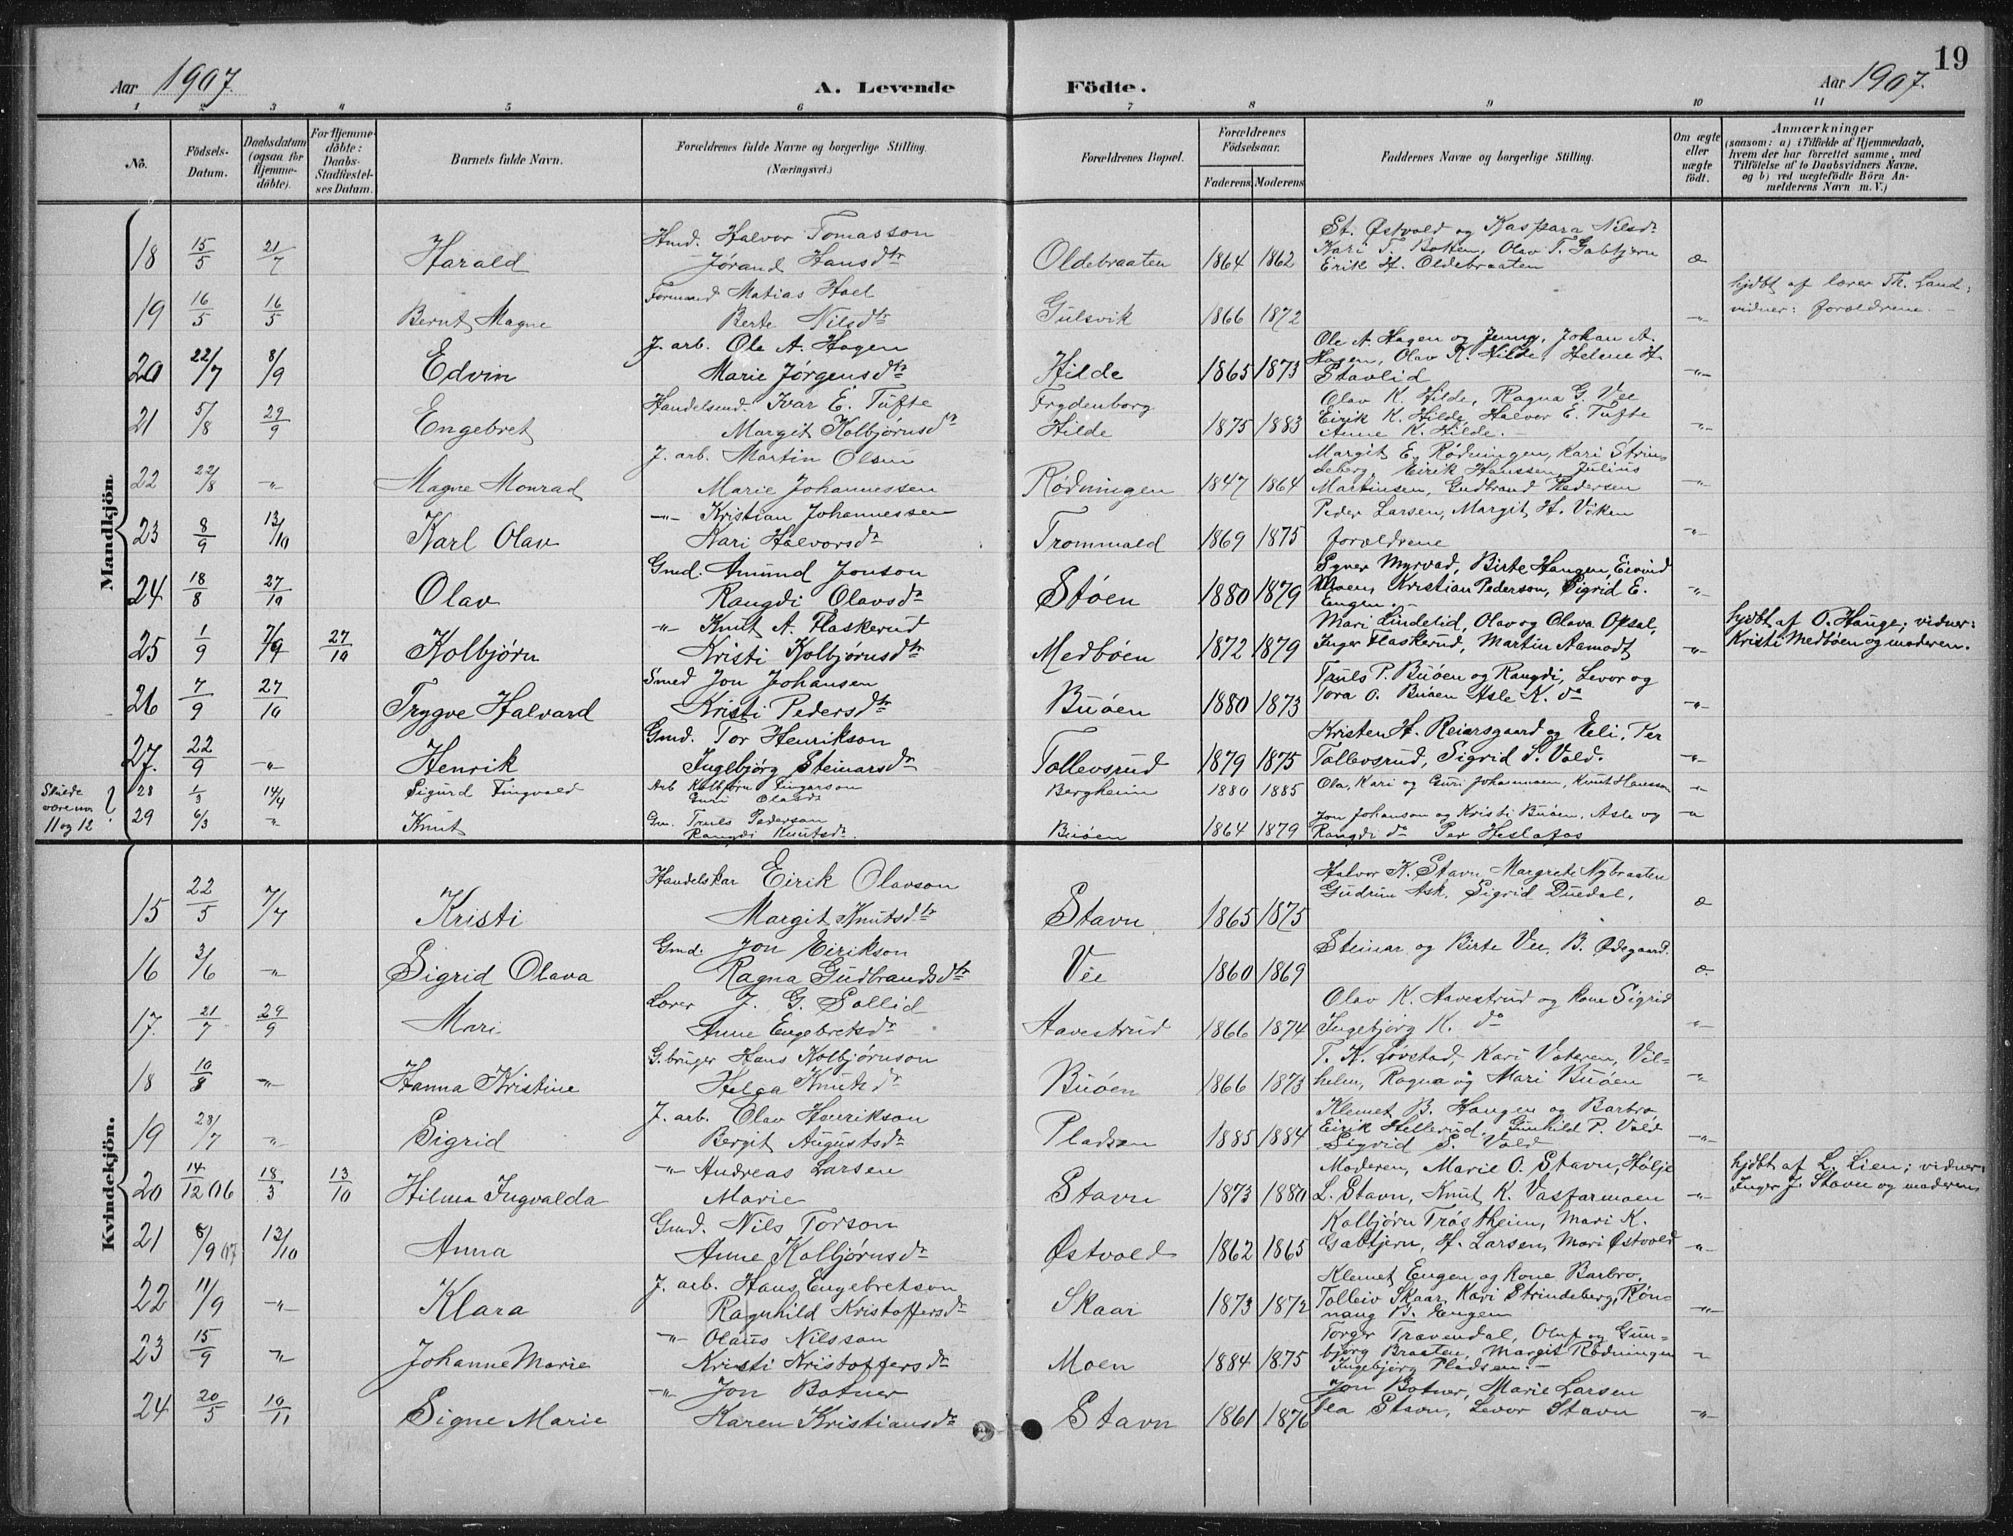 19
Aar 1907. A. Levende Födte. Aar 1907.
1 2 3 4 5 6 7 8 9 10 11
No. Födsels-Datum. Daabsdatum (ogsaa for Hjemme-döbte). For Hjemme-döbte: Daabs-Stadfæstel-ses Datum. Barnets fulde Navn. Forældrenes fulde Navne og borgerlige Stilling. (Næringsvei.) Forældrenes Bopæl. Forældrenes Födselsaar. Faderens. Moderens. Faddernes Navne og borgerlige Stilling. Om ægte eller uægte födt. Anmærkninger (saasom: a) i Tilfælde af Hjemmedaab, hvem der har forrettet samme, med Tilföielse af to Daabsvidners Navne, og b) ved uægtefödte Börn An-melderens Navn m. V.)
Mandkjön.
18 15/5 21/7 Harald Gmd. Halvor Tomasson Jørand Hansdtr Oldebraaten 1864 1862 St. Østvold og Kaspara Nilsdr Kari T. Botten, Olav T. Gabtjern Erik H. Oldebraaten æ
19 16/5 16/5 Bernt Magne Formand Matias Hoel Berte Nilsdtr Gulsvik 1866 1872 -"- hjdbt af lærer Th. Lund; vidner: forældrene. -
20 22/7 8/9 Edvin J. arb. Ole A. Hagen Marie Jørgensdtr Hilde 1865 1873 Ole A. Hagen og Jenny, Johan A. Hagen, Olav K. Hilde, Helene H. Stavlid -"-
21 5/8 29/9 Engebret Handelsmd. Ivar E. Tufte Margit Kolbjørnsdtr Frydenborg Hilde 1875 1883 Olav K. Hilde, Ragna G. Vee Eirik K. Hilde, Halvor E. Tufte Anne K. Hilde. - -"-
22 22/8 -"- Magne Monrad J. arb. Martin Olsen Marie Johannessen Rødningen 1847 1864 Margit E. Rødningen, Kari Strin-deberg, Eirik Hanssen, Julius Martinsen, Gudbrand Pedersen -"-
23 8/9 13/10 Karl Olav -"- Kristian Johannessen Kari Halvorsdr Trommald 1869 1875 Peder Larsen, Margit H. Viken forældrene -"-
24 18/8 27/10 Olav Gmd. Amund Jonson Rangdi Olavsdr Støen 1880 1879 Syver Myrvad, Birte Haugen, Eivind Moen, Kristian Pederson, Sigrid E. Engen. -"-
25 1/9 7/9 27/10 Kolbjørn -"- Knut A. Flaskerud Kristi Kolbjørnsdtr Medbøen 1872 1879 Mari Lindelid, Olav og Olava Opsal, Inger Flaskerud, Martin Aamodt -"- hjdbt af O. Hauge; vidner: Kristi Medbøen og moderen.
26 7/9 27/10 Trygve Halvard Smed Jon Johansen Kristi Pedersdtr Buøen 1880 1873 Truls P. Buøen og Rangdi, Levor og Tora O. Buøen Asle K. do -"-
27. 22/9 -"- Henrik Gmd. Tor Henrikson Ingebjørg Steinarsdr Tollevsrud 1879 1875 Kristen H. Reiersgaard og Eli, Per Tollevsrud, Sigrid S. Vold. -"-
Skulde være no 11 og 12
28 1/3 14/4 Sigurd Tingvald Arb Kolbjørn Guri Olavsdr Bergheim 1880 1885 Ola, Kari og Guri Johannesen, Knut Hansson -"-
29 6/3 " Knut Gm. Truls Pederson Rangdi Knutsdr. Buøen 1864 1879 Jon Johanson og Kristi Buøen, Asle og Rangdi do Per Heslafos -"-
Kvindekjön.
15 22/5 7/7 Kristi Handelskar Eirik Olavson Margit Knutsdtr Stavn 1865 1875 Halvor K. Stavn, Margrete Nybraaten Gudrun Ask, Sigrid Duedal. æ
16 3/6 -"- Sigrid Olava Gmd. Jon Eirikson Ragna Gudbrandsdtr Vee 1860 1869 Steinar og Birte Vee, B. Ødegaard. æ
17. 21/7 29/9 Mari Lærer J. G. Sollid Anne Engebretsdr Aavestrud 1866 1874 Olav K. Aavestrud og kone Sigrid Ingebjørg K. do -"-
18 10/8 -"- Hanna Kristine G.bruger Hans Kolbjørnson Helga Knutsdr Buøen 1866 1873 T. K. Løvstad, Kari Vateren, Vil-helm, Ragna og Mari Buøen -"-
19 28/7 -"- Sigrid J. arb. Olav Henrikson Bergit Augustsdr Pladsen 1885 1884 Klemet B. Haugen og Barbro, Eirik Hellerud, Gunhild P. Vold Sigrid S. Vold -"-
20 14/12 06 18/3 13/10 Hilma Ingvalda -"- Andreas Larsen Marie Stavn 1873 1880 Moderen, Marie O. Stavn, Hølje L. Stavn, Knut K. Vasfarmoen -"- hjdbt af L. Lien; vidner: Inger J. Stavn og moderen
21 8/9 07 13/10 Anna Gmd. Nils Torson Anne Kolbjørnsdr Østvold 1862 1865 Kolbjørn Trøstheim, Mari K. Gabtjern, H. Larsen, Mari Østvold -"-
22 11/9 -"- Klara J. arb. Hans Engebretson Ragnhild Kristoffersdr Skaar 1873 1872 Klemet Engen og kone Barbro, Tolleiv Skaar, Kari Strindeberg, Røn-naug B. Engen -"-
23 15/9 -"- Johanne Marie -"- Olaus Nilsson Kristi Kristoffersdr Moen 1884 1875 Torger Travendal, Oluf og Gun-bjørg Braaten, Margit Rødningen Ingebjørg Pladsen. - -"-
24 20/5 10/11 Signe Marie -"- Jon Botner Karen Kristiansdr Stavn 1861 1876 Jon Botner, Marie Larsen Stavn, Levor Stavn -"-